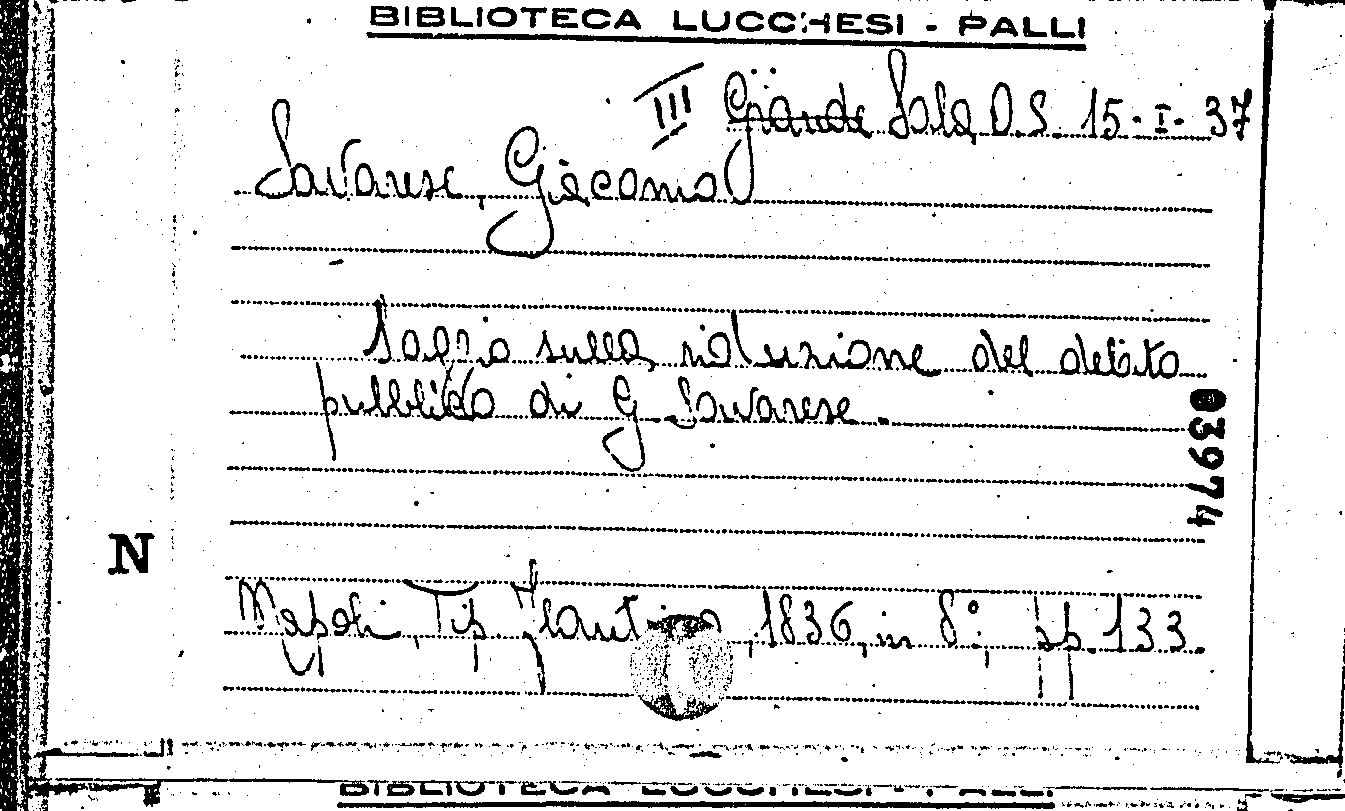 BIBLIOTECA LUCCHESI - PALLI
III Grande Sala D.S. 15-I-37
Savarese, Giacomo
Saggio sulla riduzione del debito
pubblico di G. Savarese.
03974
N
Napoli, Tip. Flautina, 1836, in 8°, pp. 133.
BIBLIOTECA LUCCHESI - PALLI